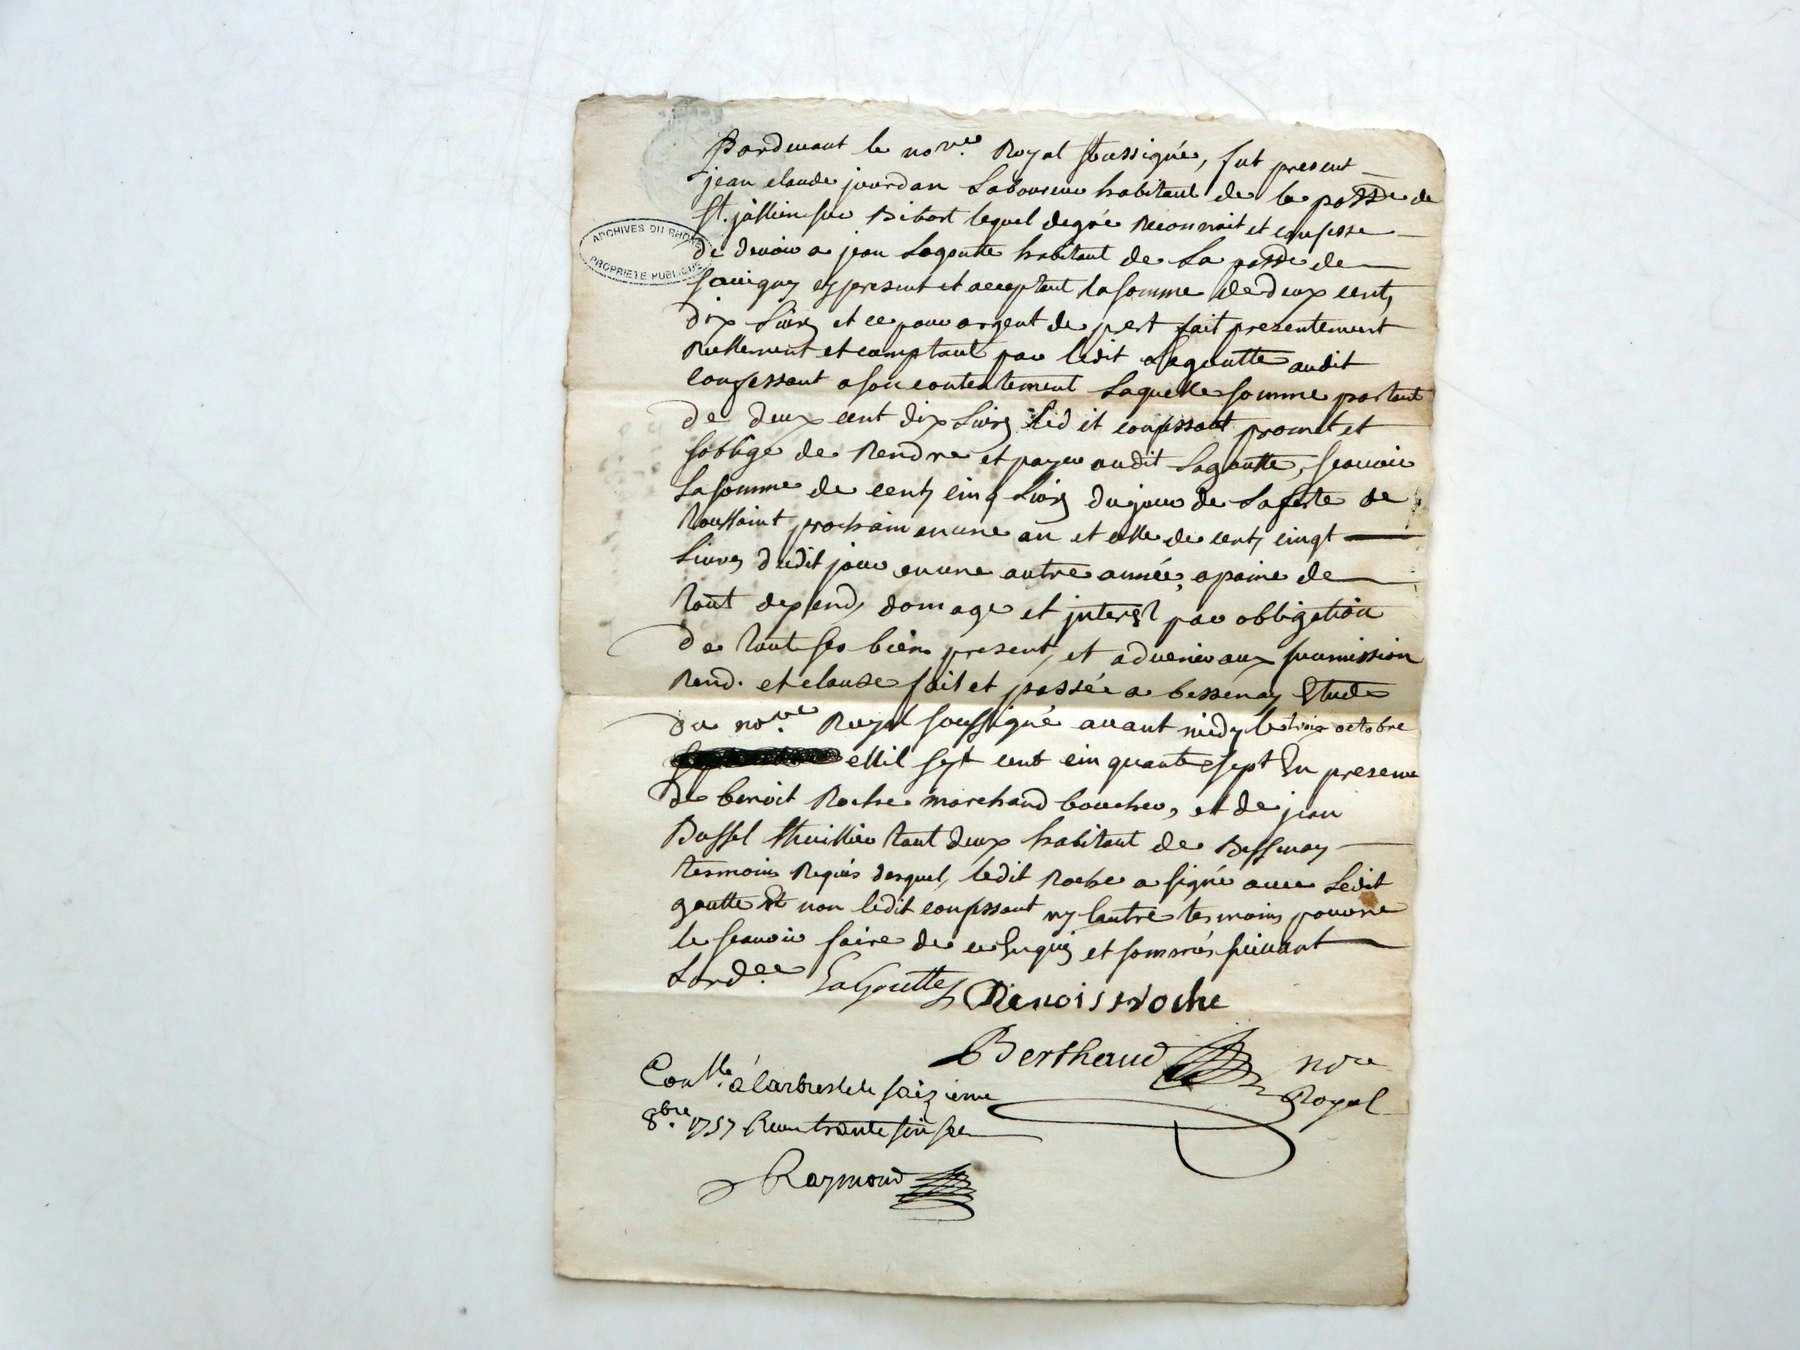 Pardevant le no.re Royal soussigné, fut present
jean claude jourdan Laboureur habitant de la posse de
St. jullien sur Bibost lequel degré Reconnait et confesse
ARCHIVES DU RHÔNE
PROPRIÉTÉ PUBLIQUE
de devoir a jean Lagoutte habitant de La posse de
Sauigny cy present et acceptant la somme de deux cent
dix Livres et ce pour argent de pret fait presentement
Rellement et comptant par ledit Lagoutte audit
confessant a son contentement Laquelle somme portant
de deux cent dix Livres Ledit confessant promet et
soblige de Rendre et payer audit Lagoutte, scauoir
La somme de cent cinq Livres du jour de La feste de
toussaint prochain en une an et elle de cent cinqt
Livres dudit jour en une autre année, a paine de
tout depend, domage et jnterest par obligation
de tout ses bien present, et aduenir aux soumission
Rend. et clause fait et passée a bessenay Etude
du no.re Royal soussigné auant midy le trois octobre
Mil sept cent cinquante sept En presence
de benoit Roche marchand boucher, et de jean
Bussel thuillier tout deux habitant de Bessenay
tesmoins Requis desquel, ledit Roche a signé auec Ledit
goutte et non ledit confessant ny lautre tesmoins pour ne
le scauoir faire de ce Enquis et sommés suiuant
Lord.ce Lagoutte Benois roche
Berthaud no.re
Royal
Con.lle à Larbresle le saizieme
8.bre 1757 Recu trante six sols
Raymond